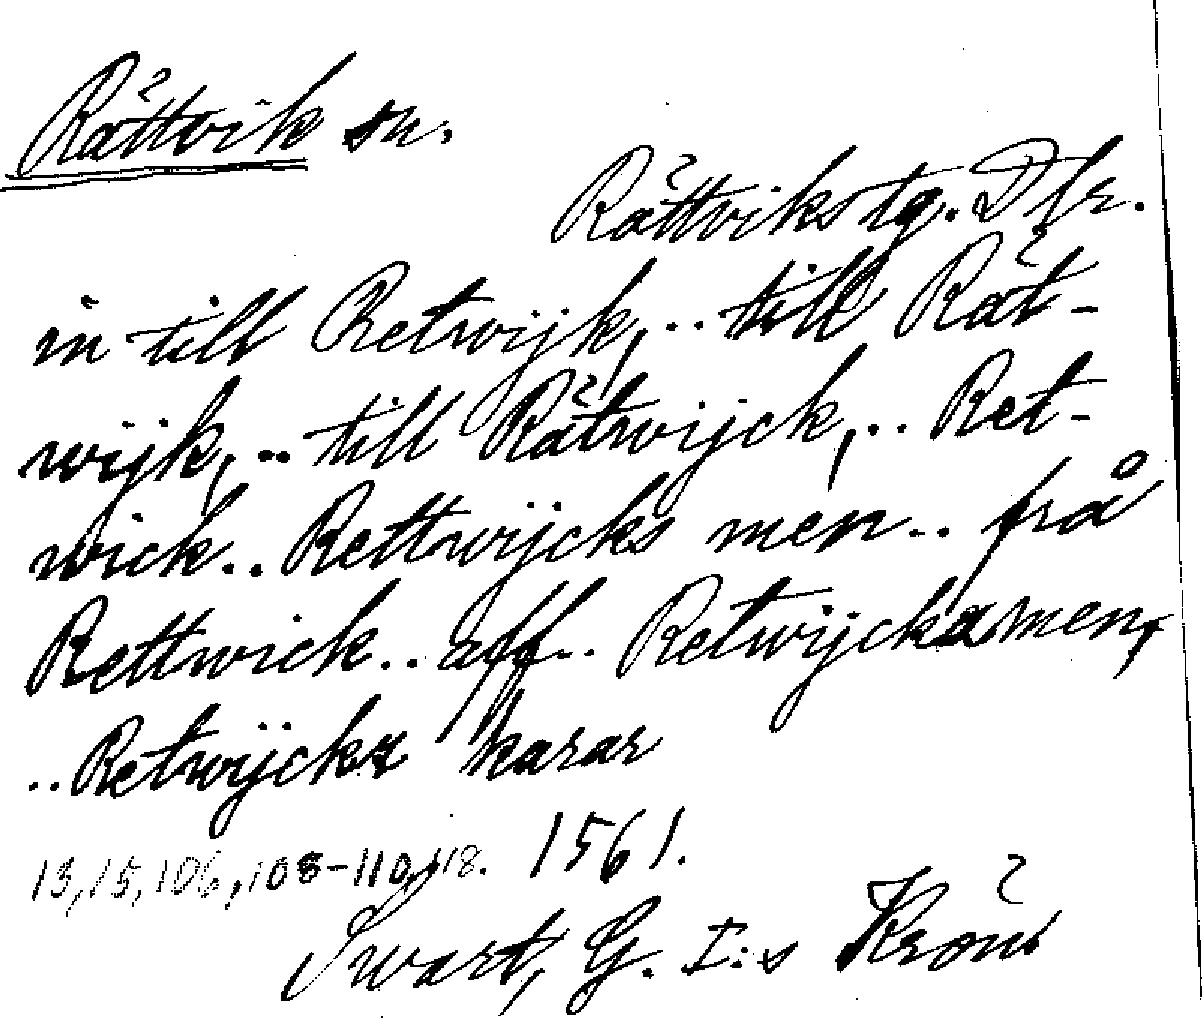 Rättvik sn.
Rättviks tg. Dlr.
in till Retwijk, .. till Rät-
wijk, .. till Rätwijck, .. Ret-
wick .. Rettwijcks men .. frå
Rettwick .. aff .. Retwijckzmen,
.. Retwijckz karar
13, 15, 106, 108-110, 118. 1561.
Swart, G. I:s Krön